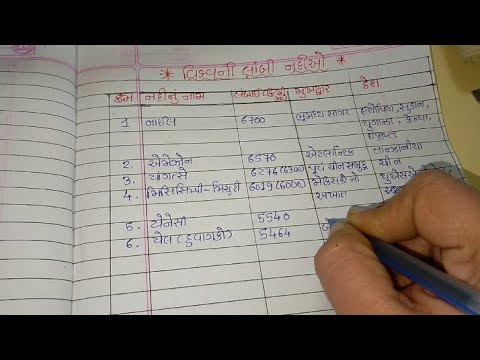 * વિશ્વની લાંબી નદીઓ *
ક્રમ નદીનું નામ લંબાઈ મુખદ્વાર દેશ
1 નાઈલ 6700 ભૂમધ્ય સાગર ઇથોપિયા, સુડાન,
યુગાન્ડા, કેન્યા,
ઇજીપ્ત
2. એમેઝોન 6570 એટલાન્ટિક તાન્ઝાનીયા
3. યાંગત્સે 6276(6300) પૂર્વ ચીન સમુદ્ર ચીન
4. મિસિસિપ્પી-મિસુરી 6019(6000) મેક્સિકો નો યુએસએ
અખાત
5. યેનેસી 5540
6. યેલો (હુવાંગહો) 5464